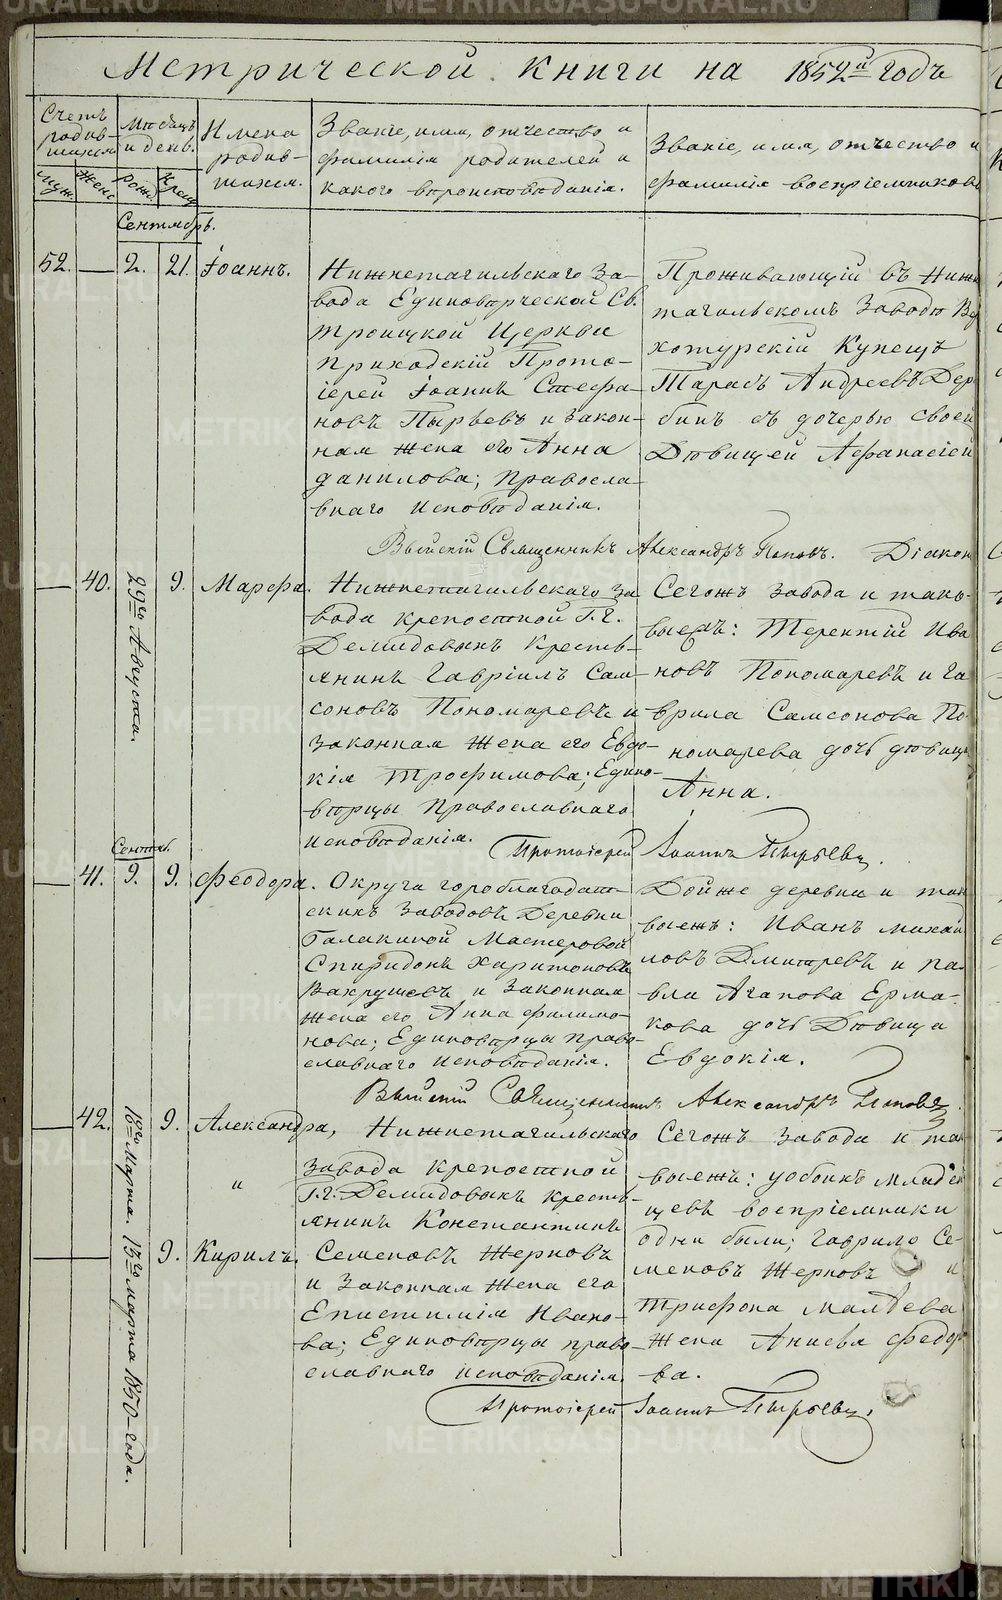 Метрической книги на 1852й годъ
Счетъ родив-шихся.
муж. женс
Мѣсяцъ и день.
рож. крещ
Имена родив-шихся.
Званіе, имя, отчество и
фамилія родителей и
какого вѣроисповѣданія.
Званіе, имя, отчество и
фамилія воспріемниковъ
Сентябрь.
52. — 2. 21. Іоаннъ.
Нижнетагильскаго за-
вода Единовѣрческой Св.
Троицкой Церкви
приходскій Прото-
іерей Іоаннъ Стефа-
новъ Пырьевъ и закон-
ная жена его Анна
Данилова; православ-
внаго исповѣданія.
Проживающій въ Нижне
тагильскомъ Заводѣ Вер
хотурскій Купецъ
Тарасъ Андреевъ Дер
бинъ съ дочерью своей
Дѣвицей Афанасіей
Выйскій Священникъ Александръ Поповъ. Діакон
— 40. 29го Августа. 9. Марѳа.
Нижнетагильскаго за
вода крепостной Г.г.
Демидовыхъ Кресть-
янинъ Гавріилъ Сам-
соновъ Пономаревъ и
законная жена его Евдо-
кія Трофимова; Едино-
вѣрцы Православнаго
исповѣданія.
Сегожъ завода и тако-
выежъ: Терентій Ива
новъ Пономаревъ и Га
врила Самсонова По-
номарева дочь дѣвица
Анна.
Протоіерей Іоаннъ Пырьевъ.
Сентяб.
— 41. 9. 9. Феодора.
Округа гороблагодат-
скихъ Заводовъ Деревни
Балакиной Мастеровой
Спиридонъ Харитоновъ
Вахрушевъ и Законная
жена его Анна Филимо-
нова; Единовѣрцы право-
славнаго исповѣданія.
Тойже деревни и так
выежъ: Иванъ Михай
ловъ Дмитревъ и Па-
вла Агапова Ерма-
кова дочь Дѣвица
Евдокія.
Выйскій Священникъ Александръ Поповъ
— 42. 18го Марта. 9. Александра,
Нижнетагильскаго
завода крепостной
Г.г. Демидовыхъ кресть-
янинъ Константинъ
Семеновъ Жерновъ
и Законная жена его
Епистимія Ивано-
ва; Единовѣрцы право-
славнаго исповѣданія.
"
— 13го марта 1850 года. 9. Кирилъ.
Сегожъ завода и та
выежъ: уобоихъ младен
цевъ воспріемники
одни были; Гаврило Се-
меновъ Жерновъ и
Трифона Малѣева
Жена Анисья Федор
ва.
Протоіерей Іоаннъ Пырьевъ.
METRIKI.GASO-URAL.RU